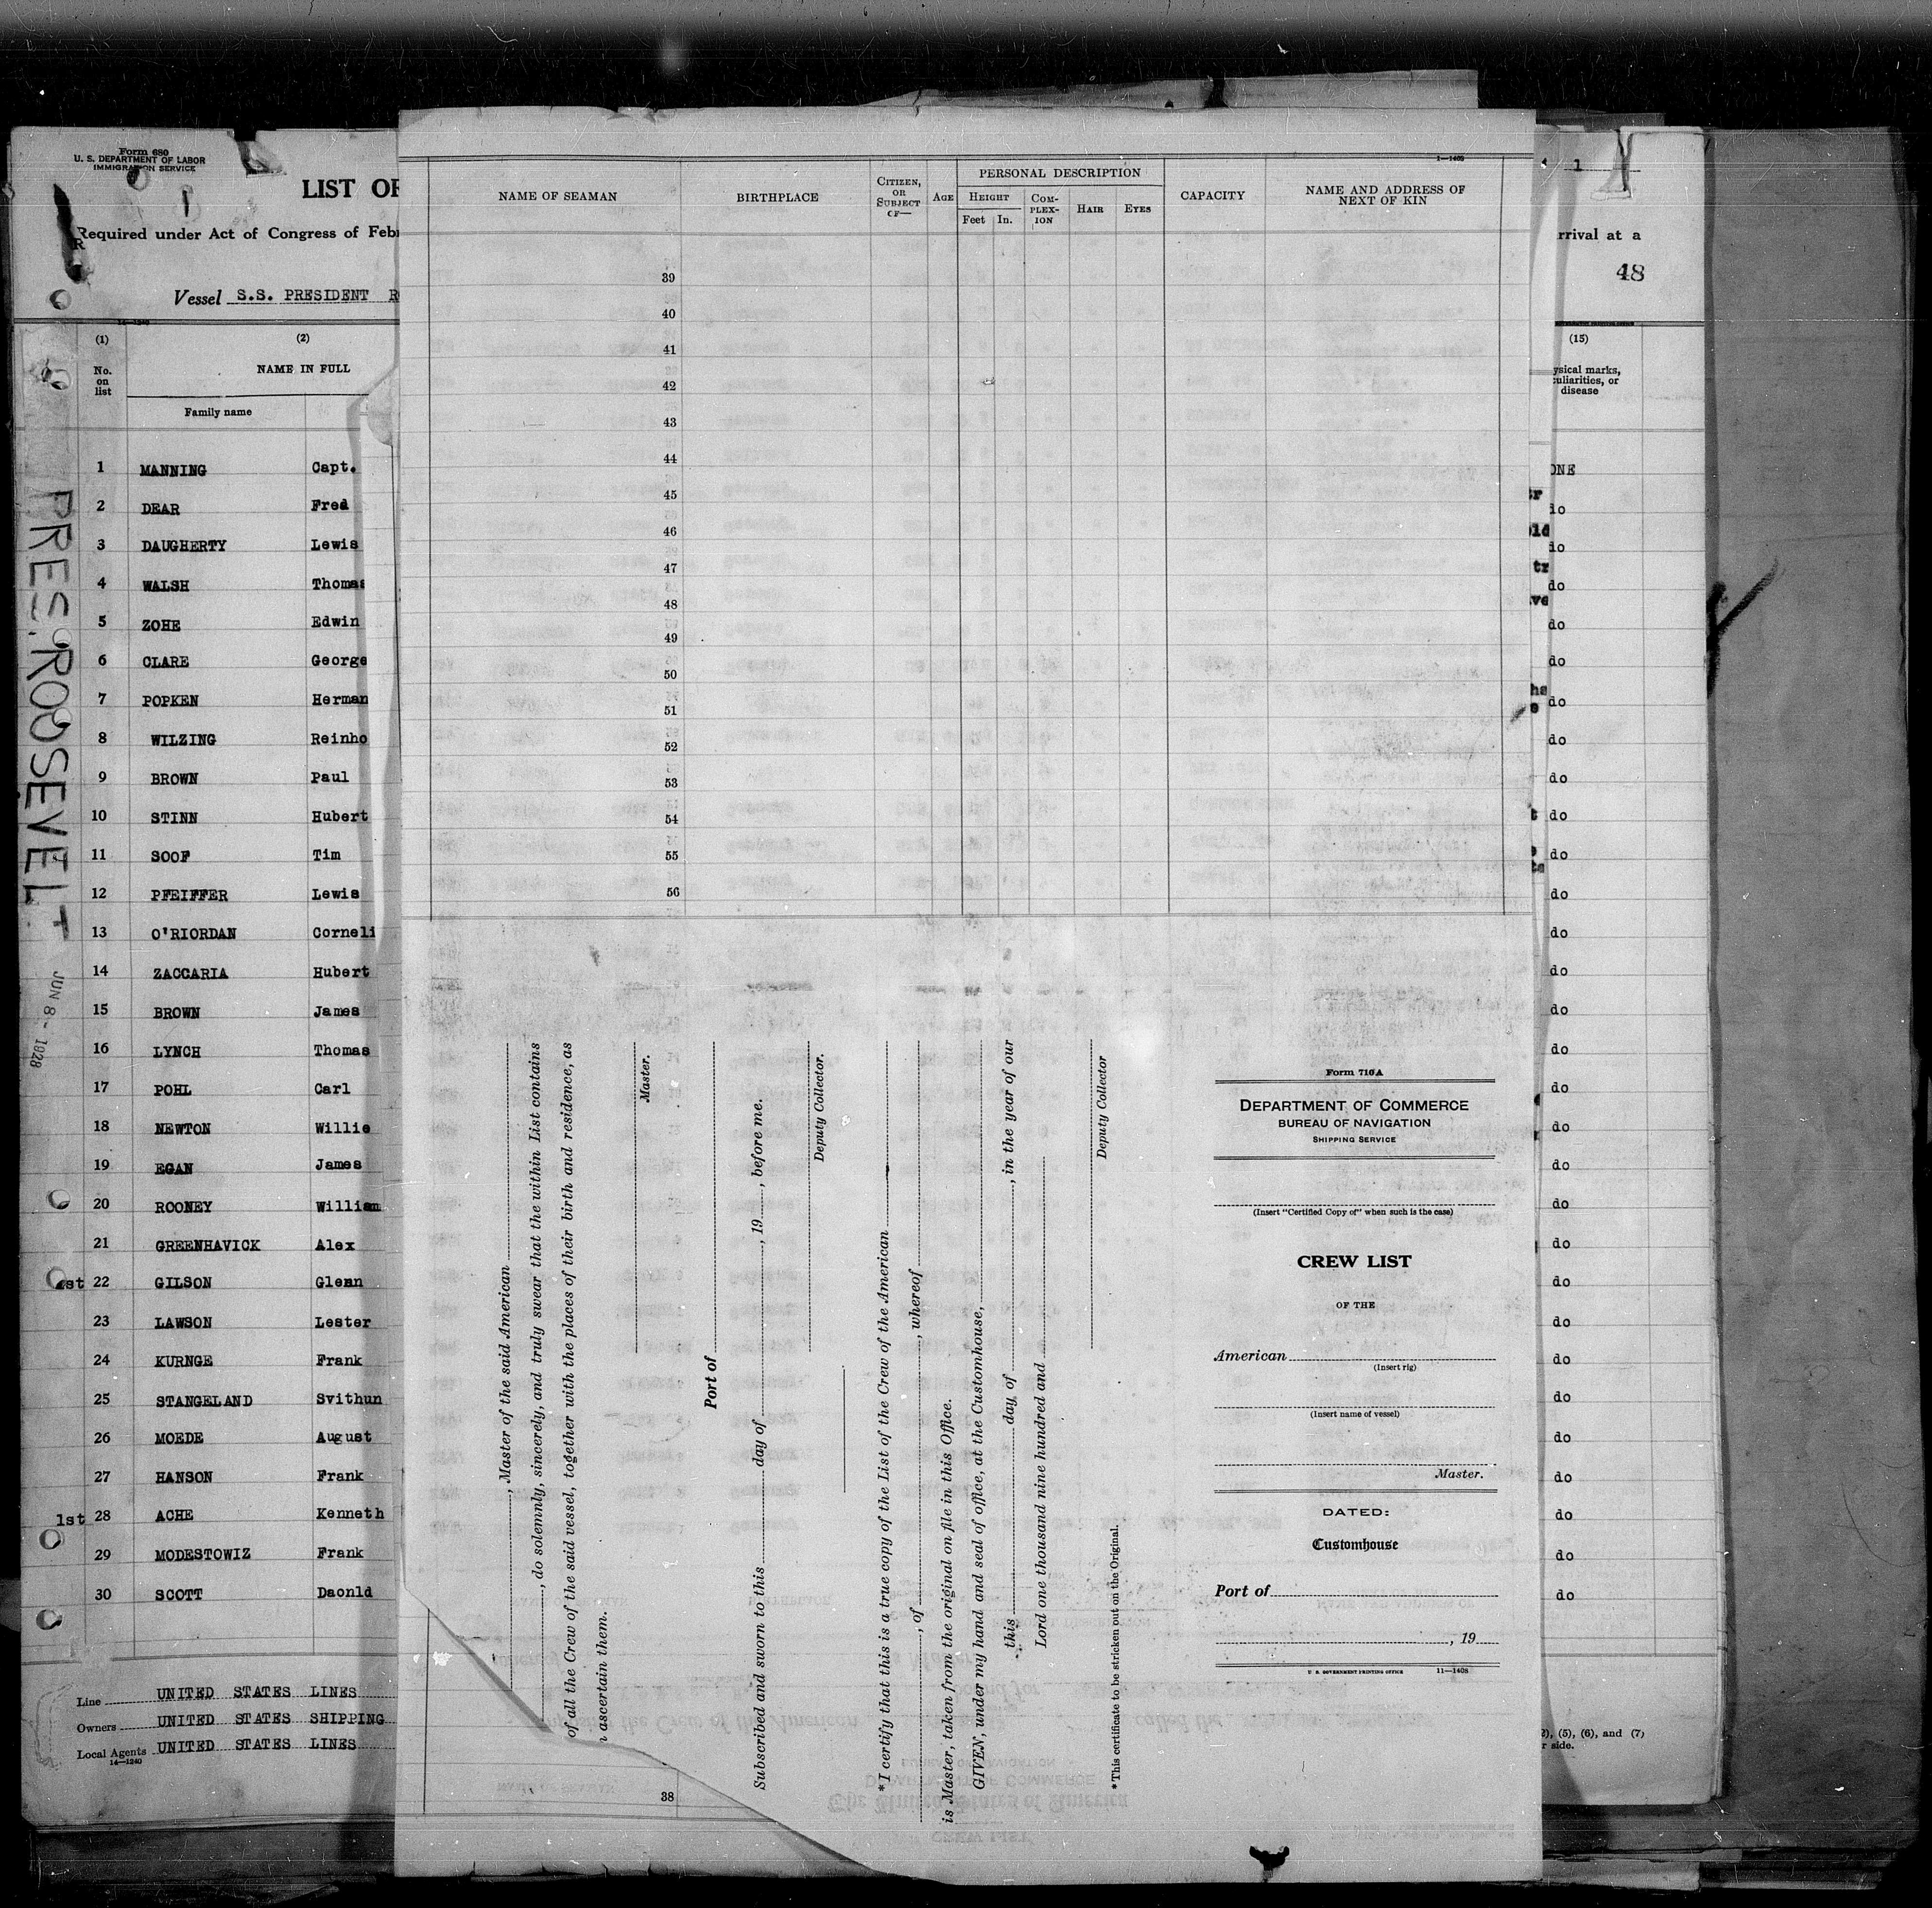 Form 680
U. S. DEPARTMENT OF LABOR
IMMIGRATION SERVICE
LIST OF
Required under Act of Congress of Feb
Vessel S.S. PRESIDENT R
(1)
(2)
No. on list
NAME IN FULL
Family name
1 MANNING Capt.
2 DEAR Fred
3 DAUGHERTY Lewis
4 WALSH Thomas
5 ZOHE Edwin
6 CLARE George
7 POPKEN Herman
8 WILZING Reinho
9 BROWN Paul
10 STINN Hubert
11 SOOF Tim
12 PFEIFFER Lewis
13 O'RIORDAN Corneli
14 ZACCARIA Hubert
15 BROWN James
16 LYNCH Thomas
17 POHL Carl
18 NEWTON Willie
19 EGAN James
20 ROONEY William
21 GREENHAVICK Alex
22 GILSON Glenn
23 LAWSON Lester
24 KURNGE Frank
25 STANGELAND Svithun
26 MOEDE August
27 HANSON Frank
1st 28 ACHE Kenneth
29 MODESTOWIZ Frank
30 SCOTT Daonld
Line UNITED STATES LINES
Owners UNITED STATES SHIPPING
Local Agents UNITED STATES LINES
14—1240
PRES. ROOSEVELT
JUN 8 - 1928
1—1408
NAME OF SEAMAN
BIRTHPLACE
CITIZEN, OR SUBJECT OF—
AGE
PERSONAL DESCRIPTION
HEIGHT
Feet In.
COM-PLEX-ION
HAIR
EYES
CAPACITY
NAME AND ADDRESS OF NEXT OF KIN
39
40
41
42
43
44
45
46
47
48
49
50
51
52
53
54
55
56
38
, Master of the said American
, do solemnly, sincerely, and truly swear that the within List contains
of all the Crew of the said vessel, together with the places of their birth and residence, as
ascertain them.
Master.
Port of
Subscribed and sworn to this day of , 19 , before me.
Deputy Collector.
*I certify that this is a true copy of the List of the Crew of the American
, of , whereof
is Master, taken from the original on file in this Office.
GIVEN, under my hand and seal of office, at the Customhouse,
this day of , in the year of our
Lord one thousand nine hundred and
Deputy Collector
*This certificate to be stricken out on the Original.
Form 710A
DEPARTMENT OF COMMERCE
BUREAU OF NAVIGATION
SHIPPING SERVICE
(Insert "Certified Copy of" when such is the case)
CREW LIST
OF THE
American
(Insert rig)
(Insert name of vessel)
Master.
DATED:
Customhouse
Port of
, 19
U. S. GOVERNMENT PRINTING OFFICE 11—1408
1
rrival at a
48
(15)
ysical marks,
culiarities, or
disease
ONE
do
do
do
do
do
do
do
do
do
do
do
do
do
do
do
do
do
do
do
do
do
do
do
do
do
do
do
do
do
2), (5), (6), and (7)
r side.